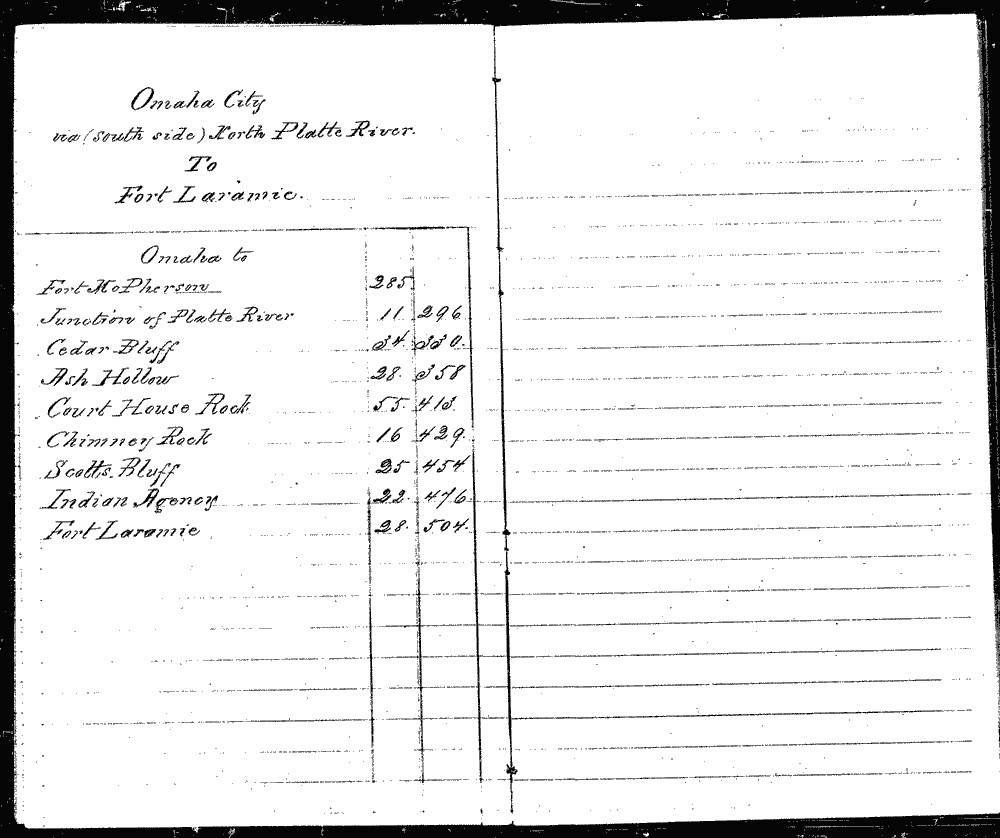 Omaha City
via (south side) North Platte River.
To
Fort Laramie.
Omaha to
Fort McPherson 285
Junction of Platte River 11 296
Cedar Bluff 34 330.
Ash Hollow 28. 358
Court House Rock 55. 413
Chimney Rock 16 429.
Scotts. Bluff 25 454
Indian Agency 22. 476
Fort Laramie 28. 504.